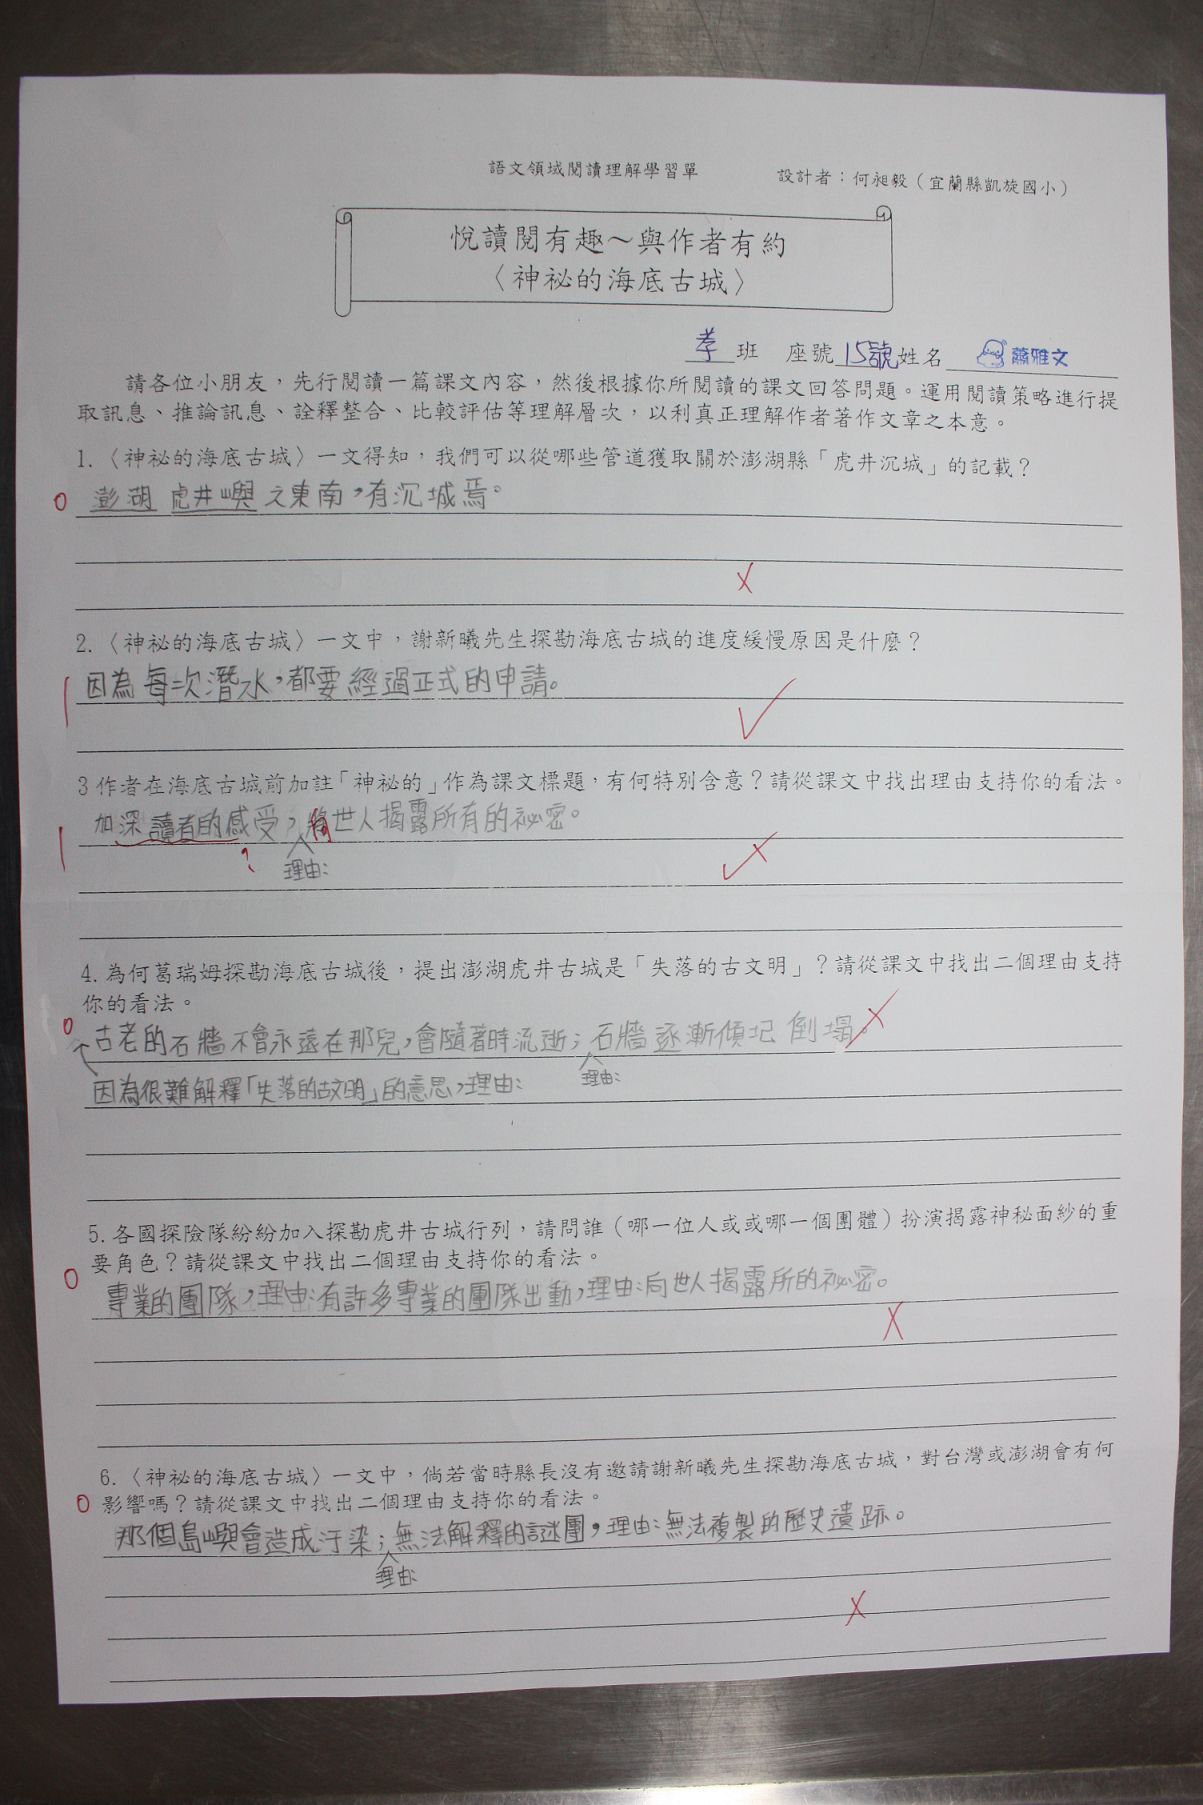 語文領域閱讀理解學習單
設計者：何昶毅（宜蘭縣凱旋國小）
悅讀閱有趣～與作者有約
〈神祕的海底古城〉
孝班 座號15號姓名 蕭雅文
請各位小朋友，先行閱讀一篇課文內容，然後根據你所閱讀的課文回答問題。運用閱讀策略進行提
取訊息、推論訊息、詮釋整合、比較評估等理解層次，以利真正理解作者著作文章之本意。
1.〈神祕的海底古城〉一文得知，我們可以從哪些管道獲取關於澎湖縣「虎井沉城」的記載？
0 澎湖虎井嶼之東南，有沉城焉。
2.〈神祕的海底古城〉一文中，謝新曦先生探勘海底古城的進度緩慢原因是什麼？
1 因為每次潛水，都要經過正式的申請。
3 作者在海底古城前加註「神祕的」作為課文標題，有何特別含意？請從課文中找出理由支持你的看法。
1 加深讀者的感受，向世人揭露所有的祕密。
? 理由：
4.為何葛瑞姆探勘海底古城後，提出澎湖虎井古城是「失落的古文明」？請從課文中找出二個理由支持
你的看法。
0 古老的石牆不會永遠在那兒，會隨著時流逝；石牆逐漸傾圮倒塌。
理由：
因為很難解釋「失落的古文明」的意思，理由：
5.各國探險隊紛紛加入探勘虎井古城行列，請問誰（哪一位人或或哪一個團體）扮演揭露神秘面紗的重
要角色？請從課文中找出二個理由支持你的看法。
0 專業的團隊，理由：有許多專業的團隊出動，理由：向世人揭露所的祕密。
6.〈神祕的海底古城〉一文中，倘若當時縣長沒有邀請謝新曦先生探勘海底古城，對台灣或澎湖會有何
影響嗎？請從課文中找出二個理由支持你的看法。
0 那個島嶼會造成汙染；無法解釋的謎團，理由：無法複製的歷史遺跡。
理由：